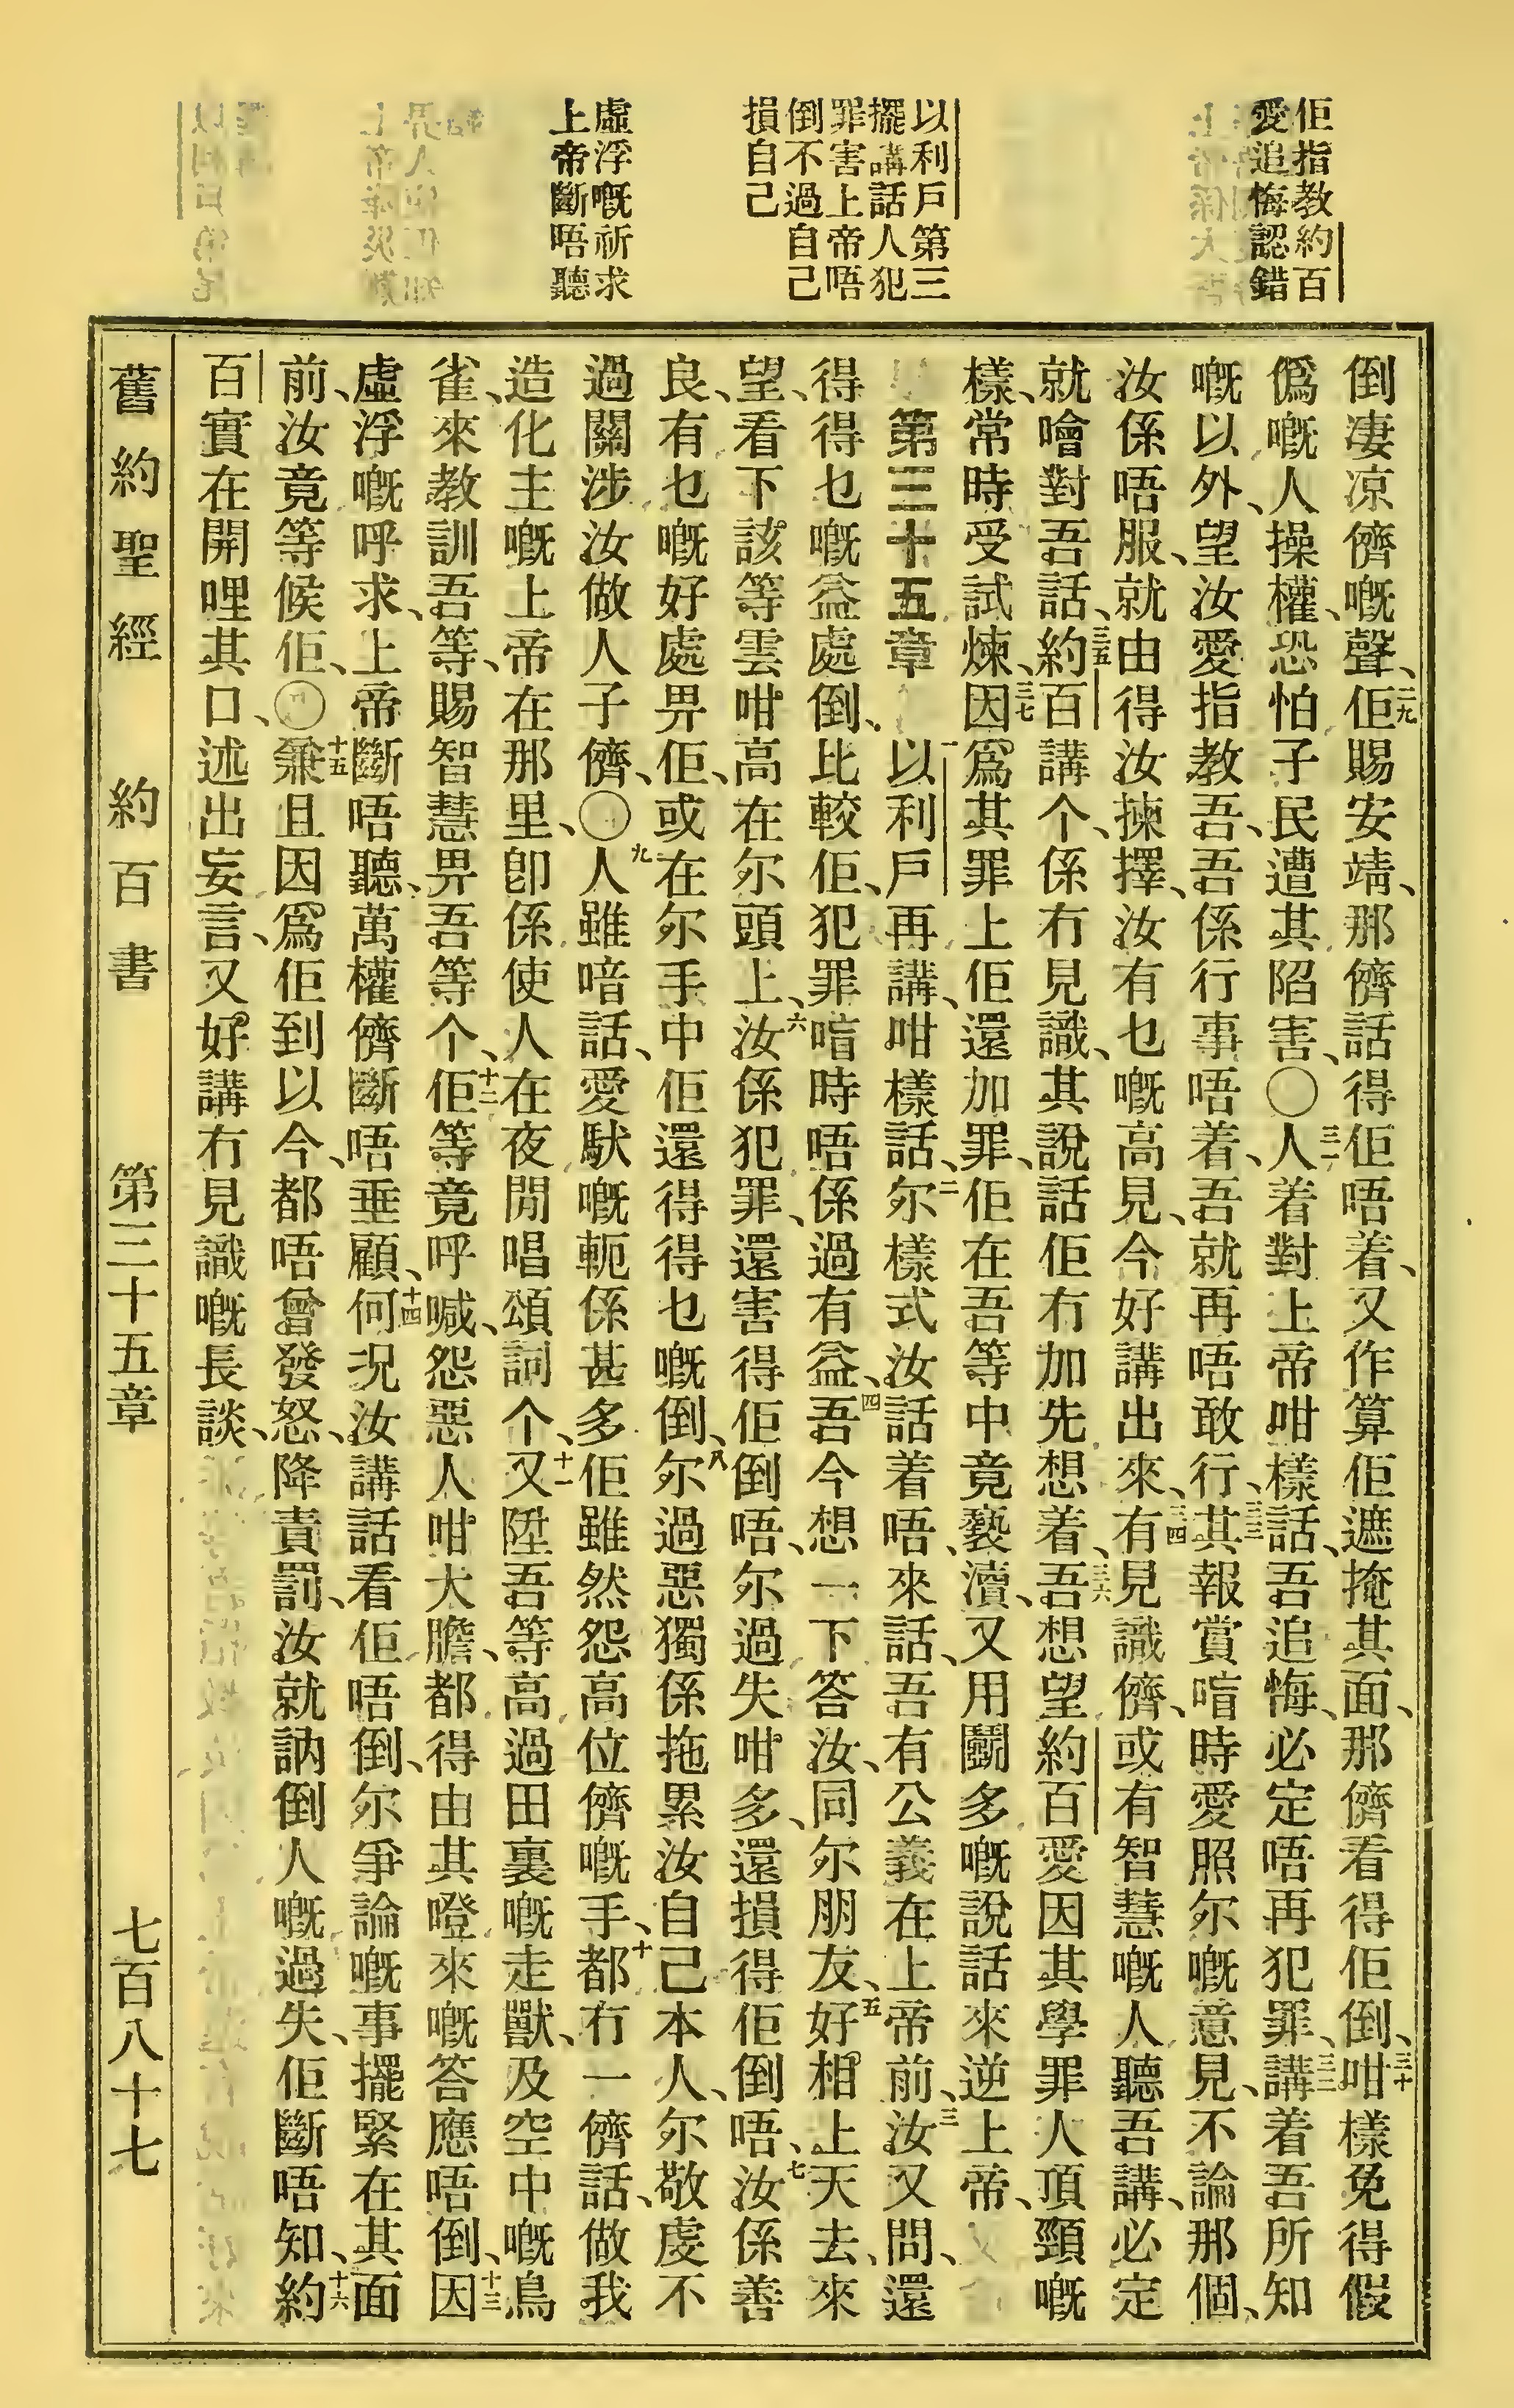 佢指教約百
愛追悔認錯
以利戶第三
擺講話人犯
罪害上帝唔
倒不過自己
損自己
虛浮嘅祈求
上帝斷唔聽
倒凄凉儕嘅聲、二九佢賜安靖、那儕話得佢唔着、又作算佢遮掩其面、那儕看得佢倒、三十咁樣免得假
僞嘅人操權、恐怕子民遭其陷害、〇三一人着對上帝咁樣話、吾追悔、必定唔再犯罪、三二講着吾所知
嘅以外、望汝愛指教吾、吾係行事唔着、吾就再唔敢行、三三其報賞喧時愛照尔嘅意見、不論那個、
汝係唔服、就由得汝揀擇、汝有乜嘅高見、今好講出來、三四有見識儕、或有智慧嘅人聽吾講、必定
就噲對吾話、三五約百講个、係冇見識、其說話佢冇加先想着、三六吾想望約百愛因其學罪人頂頸嘅
樣、常時受試煉、三七因爲其罪上佢還加罪、佢在吾等中竟褻瀆、又用鬬多嘅說話來逆上帝、
第三十五章 一以利戶再講、咁樣話、二尔樣式汝話着唔、來話、吾有公義在上帝前、三汝又問、還
得得乜嘅益處倒、比較佢、犯罪喧時唔係過有益、四吾今想一下答汝、同尔朋友、五好相上天去、來
望、看下該等雲咁高在尔頭上、六汝係犯罪、還害得佢倒唔、尔過失咁多、還損得佢倒唔、七汝係善
良、有乜嘅好處畀佢、或在尔手中佢還得得乜嘅倒、八尔過惡獨係拖累汝自己本人、尔敬虔不
過關涉汝做人子儕、〇九人雖喑話、愛馱嘅軛係甚多、佢雖然怨高位儕嘅手、十都冇一儕話、做我
造化主嘅上帝在那里、卽係使人在夜間唱頌詞个、十一又陞吾等高過田裏嘅走獸、及空中嘅鳥
雀、來教訓吾等、賜智慧畀吾等个、十二佢等竟呼喊、怨惡人咁大膽、都得由其噔來嘅答應唔倒、十三因
虛浮嘅呼求、上帝斷唔聽、萬權儕斷唔垂顧、十四何况汝講話看佢唔倒、尔爭論嘅事擺緊在其面
前、汝竟等候佢、〇十五兼且因爲佢到以今、都唔曾發怒、降責罰、汝就訥倒人嘅過失、佢斷唔知、十六約
百實在開哩其口、述出妄言、又好講冇見識嘅長談、
舊約聖經 約百書 第三十五章 七百八十七